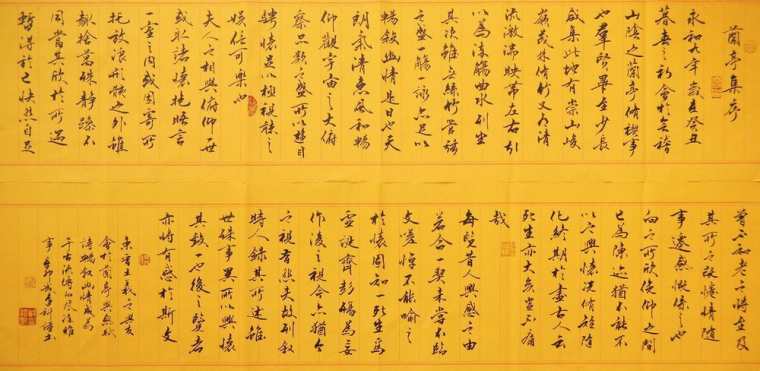 蘭亭集序
永和九年歲在癸丑
暮春之初會於會稽
山陰之蘭亭修稧事
也羣賢畢至少長
咸集此地有崇山峻
嶺茂林修竹又有清
流激湍映帶左右引
以為流觴曲水列坐
其次雖無絲竹管弦
之盛一觴一詠亦足以
暢敘幽情是日也天
朗氣清惠風和暢
仰觀宇宙之大俯
察品類之盛所以遊目
騁懷足以極視聽之
娛信可樂也
夫人之相與俯仰一世
或取諸懷抱晤言
一室之內或因寄所
託放浪形骸之外雖
趣捨萬殊靜躁不
同當其欣於所遇
暫得於己快然自足
曾不知老之將至及
其所之既惓情隨
事遷感慨係之也
向之所欣俛仰之間
已為陳迹猶不能不
以之興懷況脩短隨
化終期於盡古人云
死生亦大矣豈不痛
哉
每覽昔人興感之由
若合一契未嘗不臨
文嗟悼不能喻之
於懷固知一死生為
虛誕齊彭殤為妄
作後之視今亦猶今
之視昔悲夫故列敘
時人錄其所述雖
世殊事異所以興懷
其致一也後之覽者
亦將有感於斯文
東晉王羲之與友
會於蘭亭興
詩暢敘幽情成為
千古